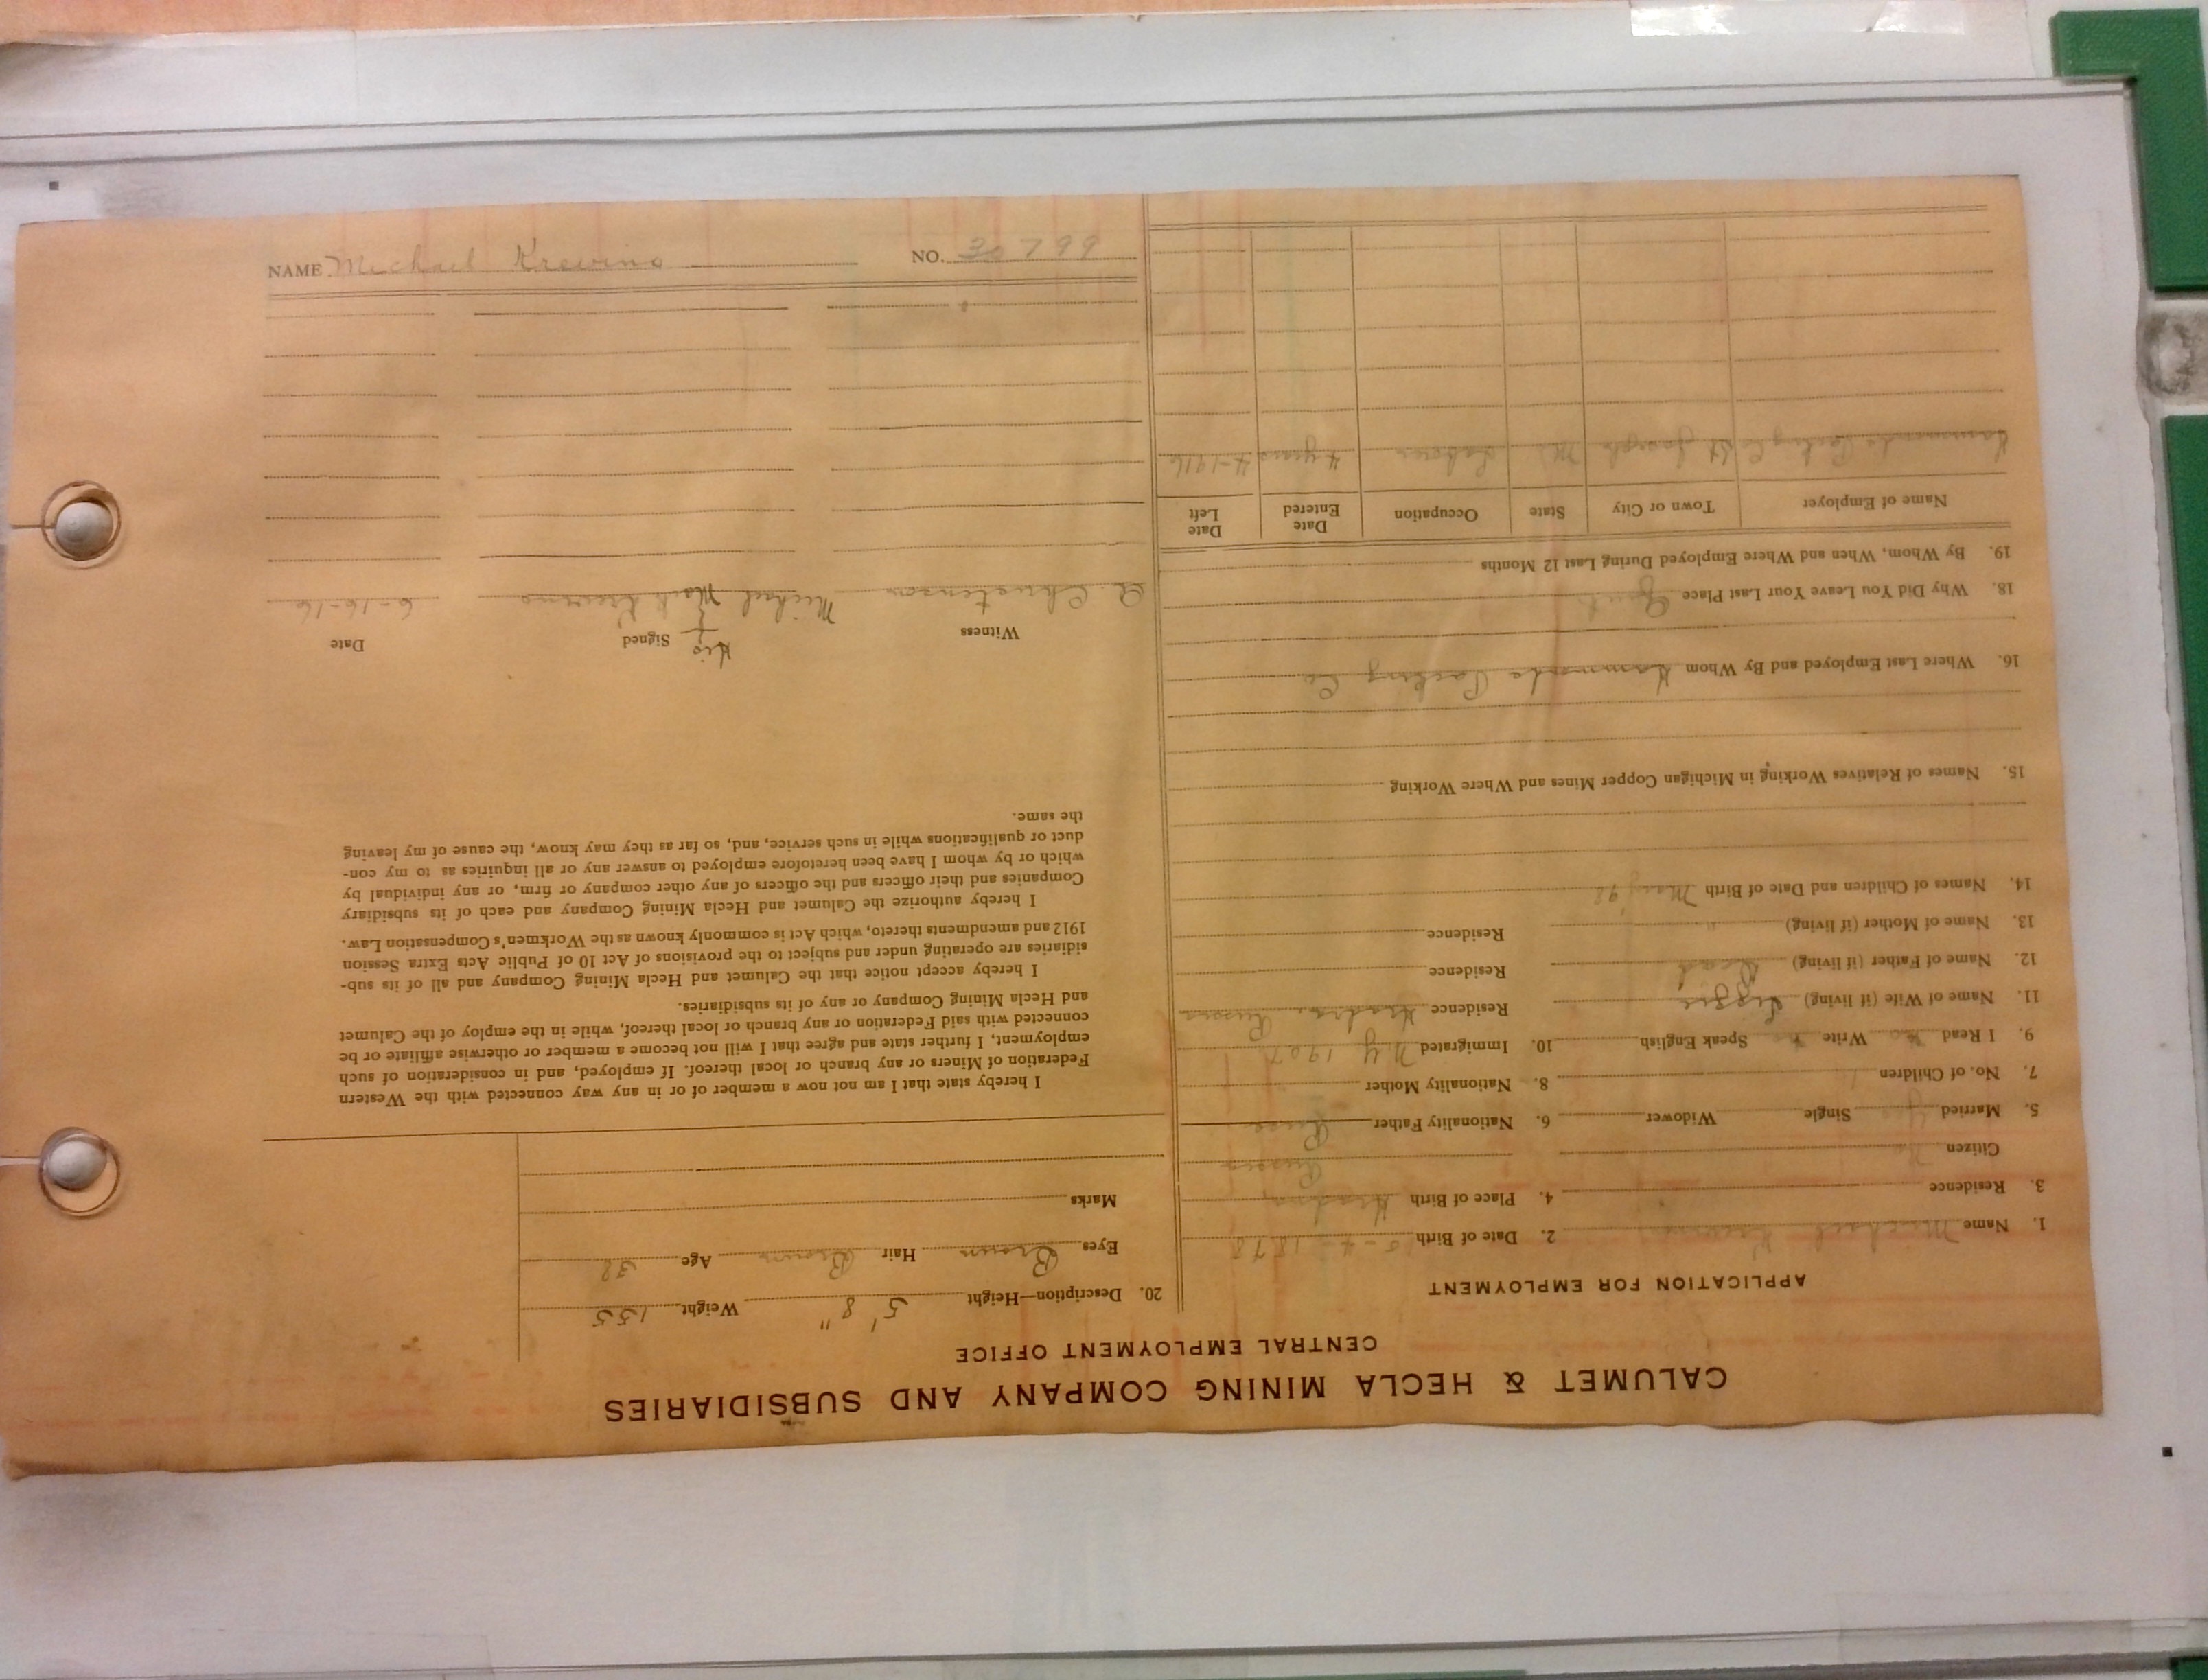 CALUMET & HECLA MINING COMPANY AND SUBSIDIARIES
CENTRAL EMPLOYMENT OFFICE
APPLICATION FOR EMPLOYMENT
1. Name Michael Krewino 2. Date of Birth 1878
3. Residence 4. Place of Birth
Citizen No Russia
5. Married Single Widower 6. Nationality Father
7. No. of Children 8. Nationality Mother
9. I Read No Write No Speak English 10. Immigrated N.Y. 1907
11. Name of Wife (if living) Residence Russia
12. Name of Father (if living) Dead Residence
13. Name of Mother (if living) " Residence
14. Names of Children and Date of Birth Mary
15. Names of Relatives Working in Michigan Copper Mines and Where Working
16. Where Last Employed and By Whom Hammonds Packing Co
18. Why Did You Leave Your Last Place Quit
19. By Whom, When and Where Employed During Last 12 Months
Name of Employer Town or City State Occupation Date Entered Date Left
Hammonds Packing Co St Joseph Mo Laborer 4 years 4-1916
20. Description—Height 5' 8" Weight 155
Eyes Brown Hair Brown Age 38
Marks
I hereby state that I am not now a member of or in any way connected with the Western
Federation of Miners or any branch or local thereof. If employed, and in consideration of such
employment, I further state and agree that I will not become a member or otherwise affiliate or be
connected with said Federation or any branch or local thereof, while in the employ of the Calumet
and Hecla Mining Company or any of its subsidiaries.
I hereby accept notice that the Calumet and Hecla Mining Company and all of its sub-
sidiaries are operating under and subject to the provisions of Act 10 of Public Acts Extra Session
1912 and amendments thereto, which Act is commonly known as the Workmen's Compensation Law.
I hereby authorize the Calumet and Hecla Mining Company and each of its subsidiary
Companies and their officers and the officers of any other company or firm, or any individual by
which or by whom I have been heretofore employed to answer any or all inquiries as to my con-
duct or qualifications while in such service, and, so far as they may know, the cause of my leaving
the same.
Witness Signed His Date
A. Christenson Michael X Mark Krewino 6-16-16
NAME Michael Krewino NO. 30799